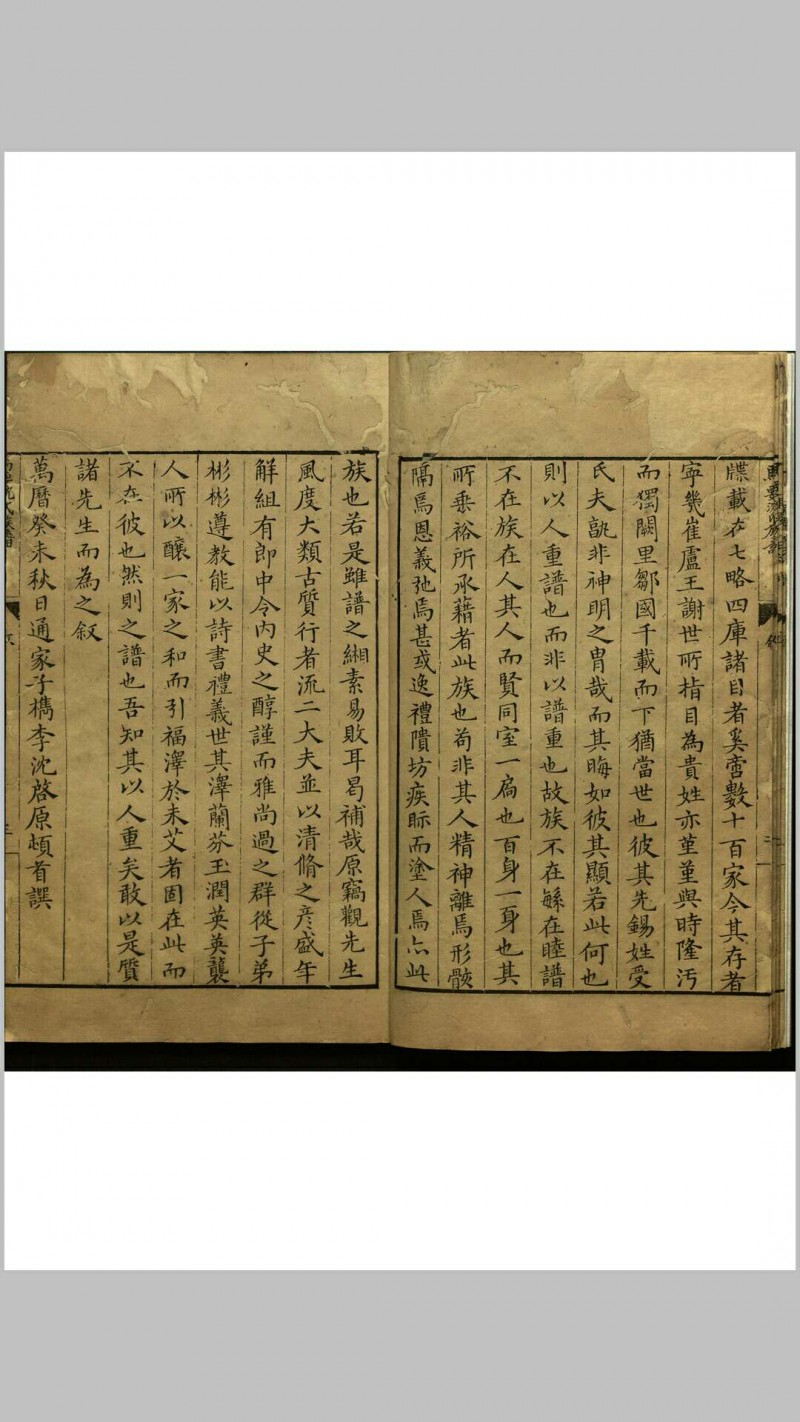 牒載在七略四庫諸目者奚啻數十百家今其存者
寧幾崔盧王謝世所指目為貴姓亦堇堇與時隆汚
而獨闕里鄒國千載而下猶當世也彼其先錫姓受
氏夫孰非神明之胄哉而其晦如彼其顯若此何也
則以人重譜也而非以譜重也故族不在繇在睦譜
不在族在人其人而賢同室一扃也百身一身也其
所垂裕所承藉者此族也苟非其人精神離焉形骸
隔焉恩義弛焉甚或逸禮隤坊疾眎而塗人焉亦此
族也若是雖譜之緗素易敗耳曷補哉原竊觀先生
風度大類古質行者流二大夫並以清脩之彦盛年
解組有郎中令內史之醇謹而雅尚過之群從子弟
彬彬遵教能以詩書禮義世其澤蘭芬玉潤英英襲
人所以釀一家之和而引福澤於未艾者固在此而
不在彼也然則之譜也吾知其以人重矣敢以是質
諸先生而為之叙
萬曆癸未秋日通家子檇李沈啓原頓首譔